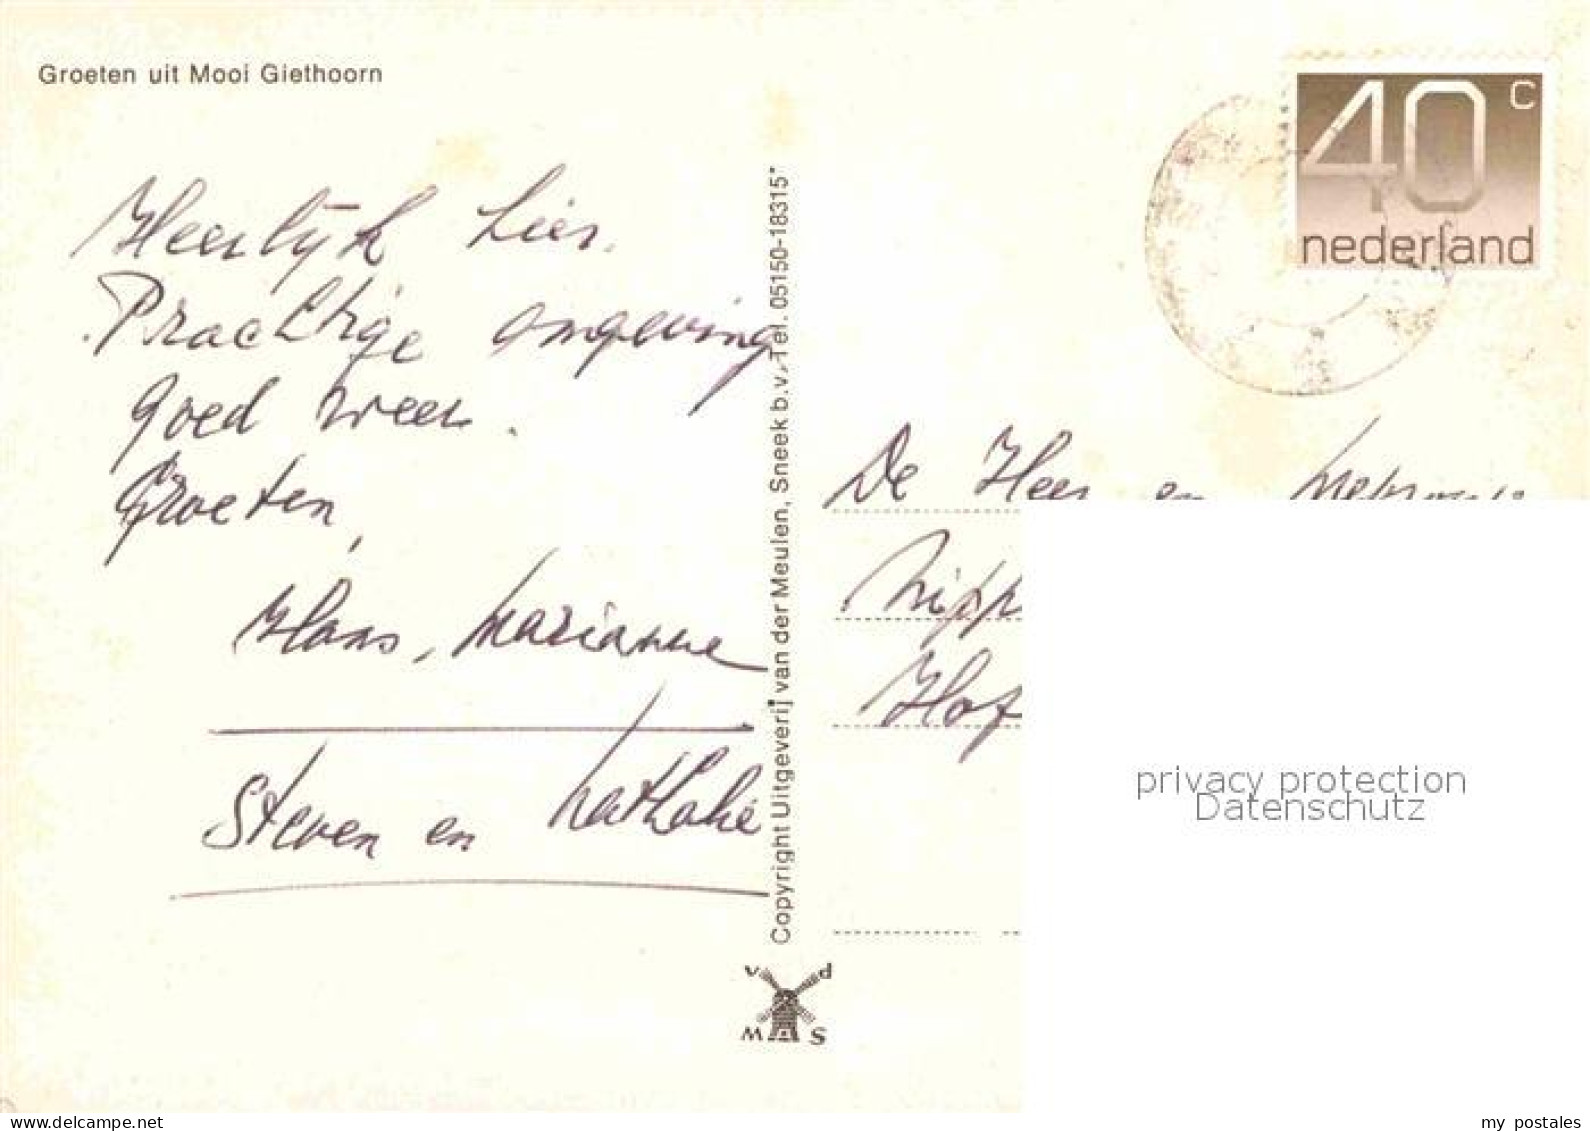 Groeten uit Mooi Giethoorn
40 c
nederland
Heerlijk hier.
Prachtige omgeving
Goed weer.
Groeten,
Hans, Marianne
Steven en Nathalie
Copyright Uitgeverij van der Meulen, Sneek b.v. Tel. 05150-18315*
De Heer en Mevrouw
Hof
privacy protection
Datenschutz
v d
M S
www.delcampe.net
my_postales